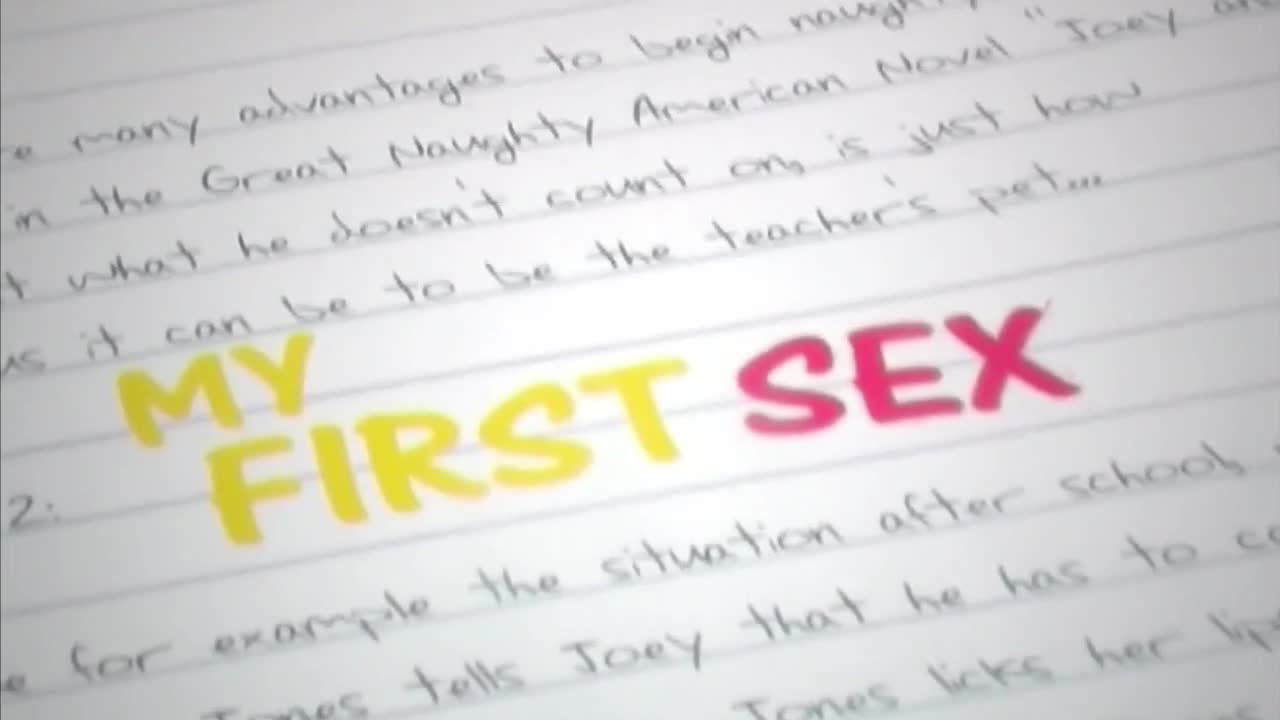 many advantages to begin
in the Great Naughty American Novel "Joey
what he doesn't count on, is just how
it can be to be the teacher's pet...
MY
FIRST SEX
2:
for example the situation after school,
tells Joey that he has to
Jones licks her